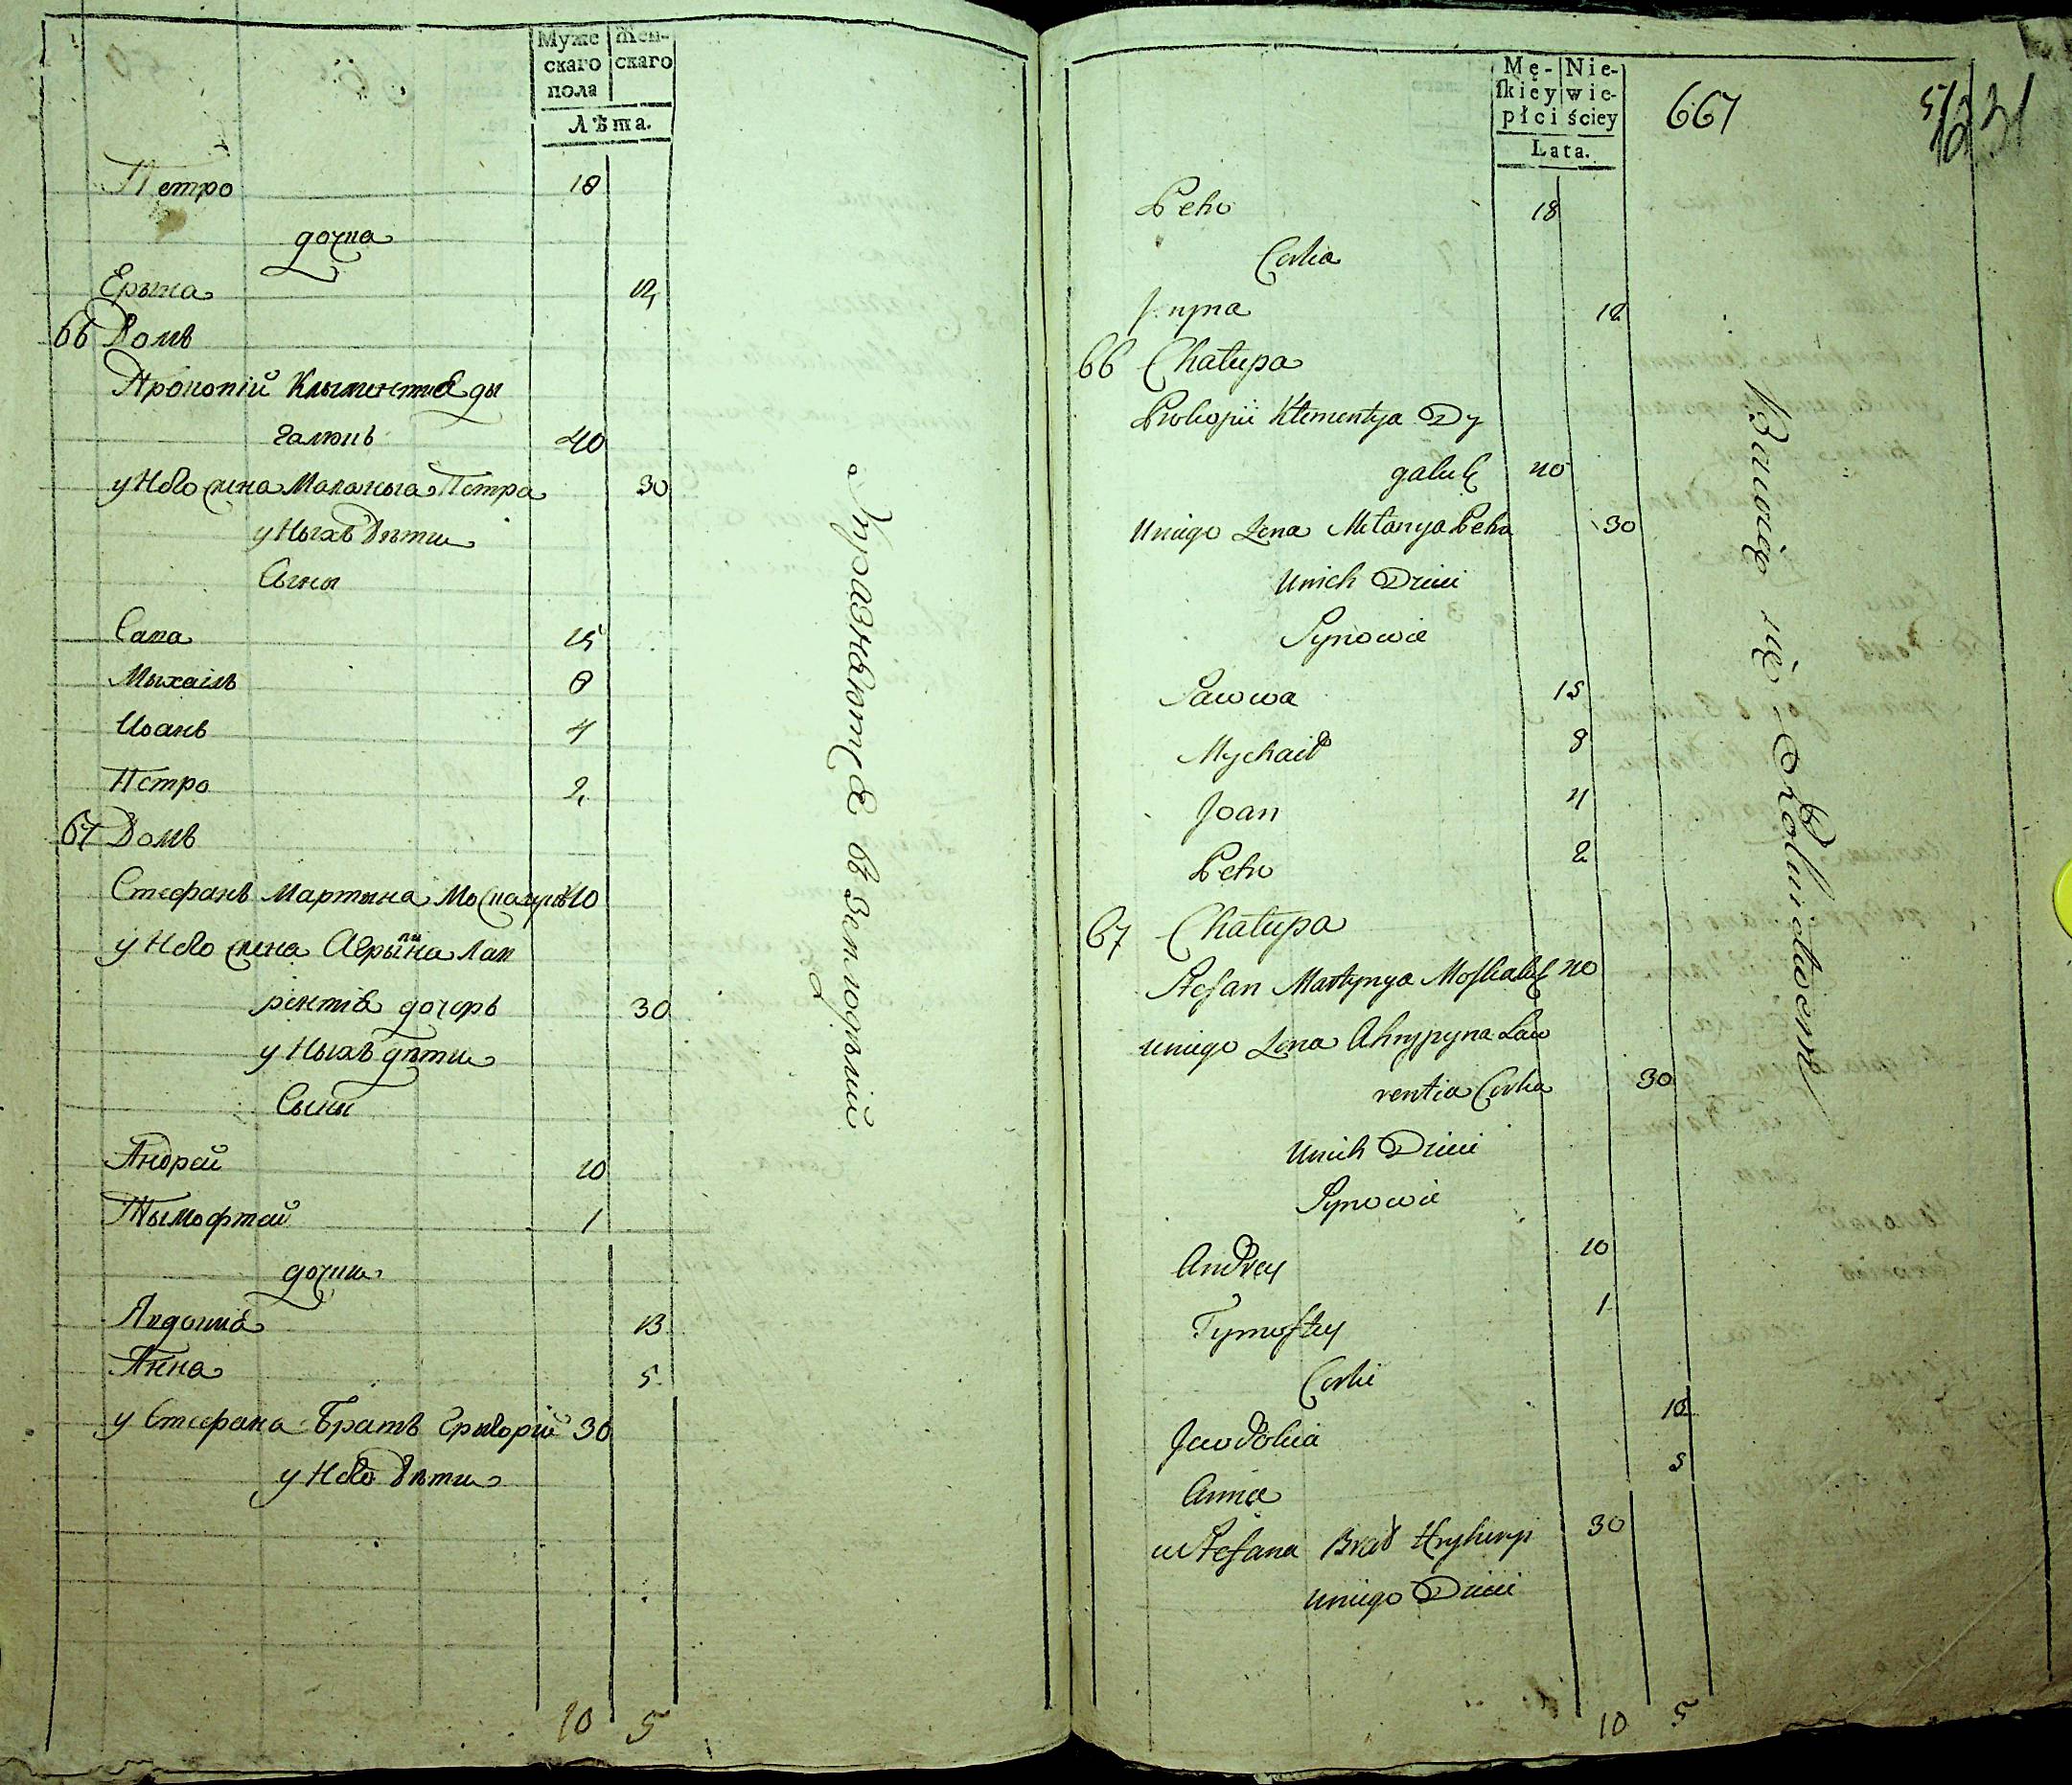 Муже Жен-
скаго скаго
пола
Лѣта.
Петро 18
дочка
Ерына 12
66 Домъ
Прокопій Клыментія Ды
галюкъ 40
у Него жена Маланыа Петра 30
у Ныхъ дѣти
Сыны
Сава 15
Мыхаілъ 8
Иоанъ 4
Петро 2
67 Домъ
Стефанъ Мартына Москалукъ 40
у Него жена Агрыпина Лав
рентія дочерь 30
у Ныхъ дѣти
Сыны
Андрей 10
Тымофтей 1
дочки
Явдокиа 13
Анна 5
у Стефана Братъ Григорій 30
у Него дѣти
10 5
Упразняются въ Земледѣлии
Mę- Nie-
ſkiey wie-
płci ściey
Lata.
667
31
Petro 18
Corka
Jryna 12
66 Chałupa
Prokopii Klementya Dy
galuk 40
Uniego Zena Mełanya Petra 30
Unich Dzieci
Synowie
Sawwa 15
Mychaił 8
Joan 4
Petro 2
67 Chałupa
Stefan Martynya Moſkaluk 40
Uniego Zena Ahrypyna Law
rentia Corka 30
Unich Dzieci
Synowie
Andrey 10
Tymoftey 1
Corki
Jewdokia 13
Anna 5
u Stefana Brat Hryhoryi 30
Uniego Dzieci
10 5
Bawią się Rolnictwem